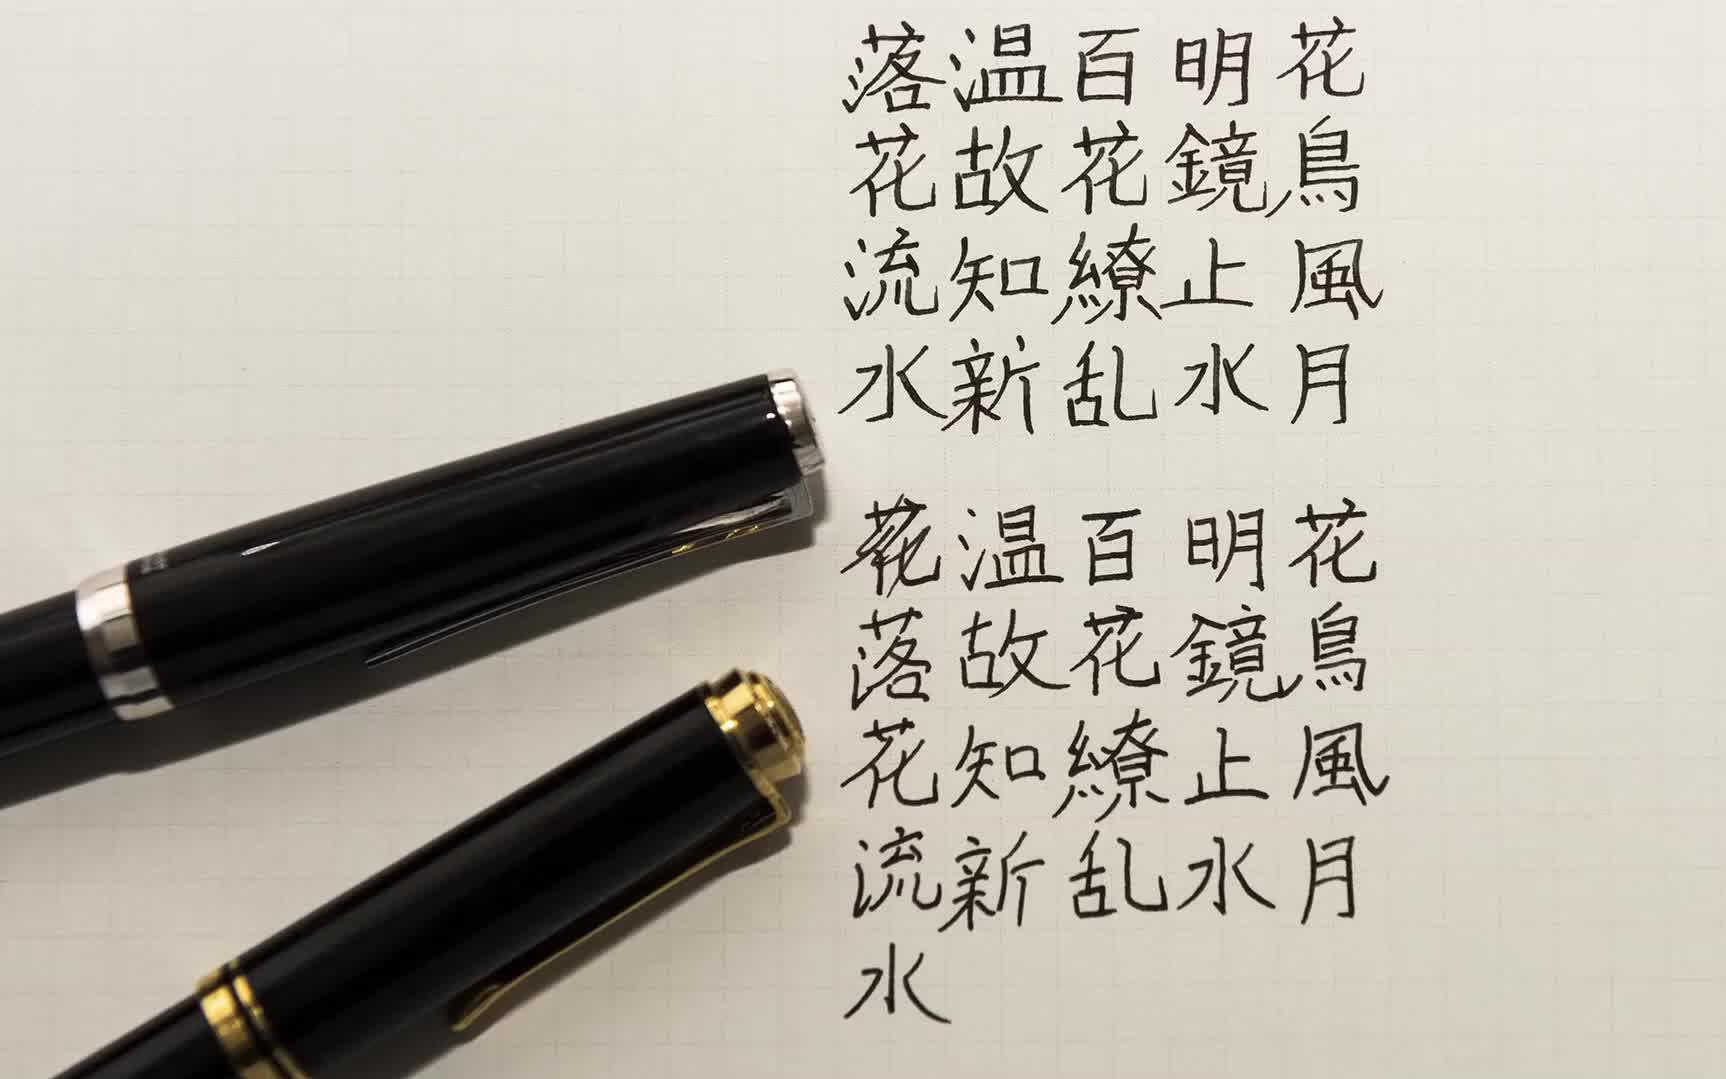 花鳥風月
明鏡止水
百花繚乱
温故知新
落花流水
花鳥風月
明鏡止水
百花繚乱
温故知新
花落花流水